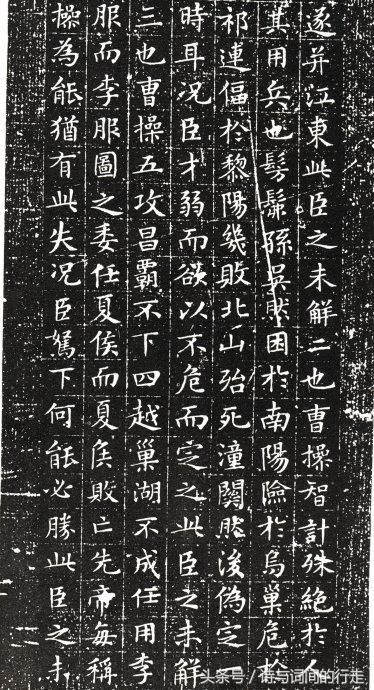 遂并江東此臣之未解二也曹操智計殊絕於人
其用兵也髣髴孫吳然困於南陽險於烏巢危於
祁連偪於黎陽幾敗北山殆死潼關然後偽定一
時耳况臣才弱而欲以不危而定之此臣之未解
三也曹操五攻昌霸不下四越巢湖不成任用李
服而李服圖之委任夏侯而夏侯敗亡先帝每稱
操為能猶有此失况臣駑下何能必勝此臣之未
头条号 / 诗与词间的行走